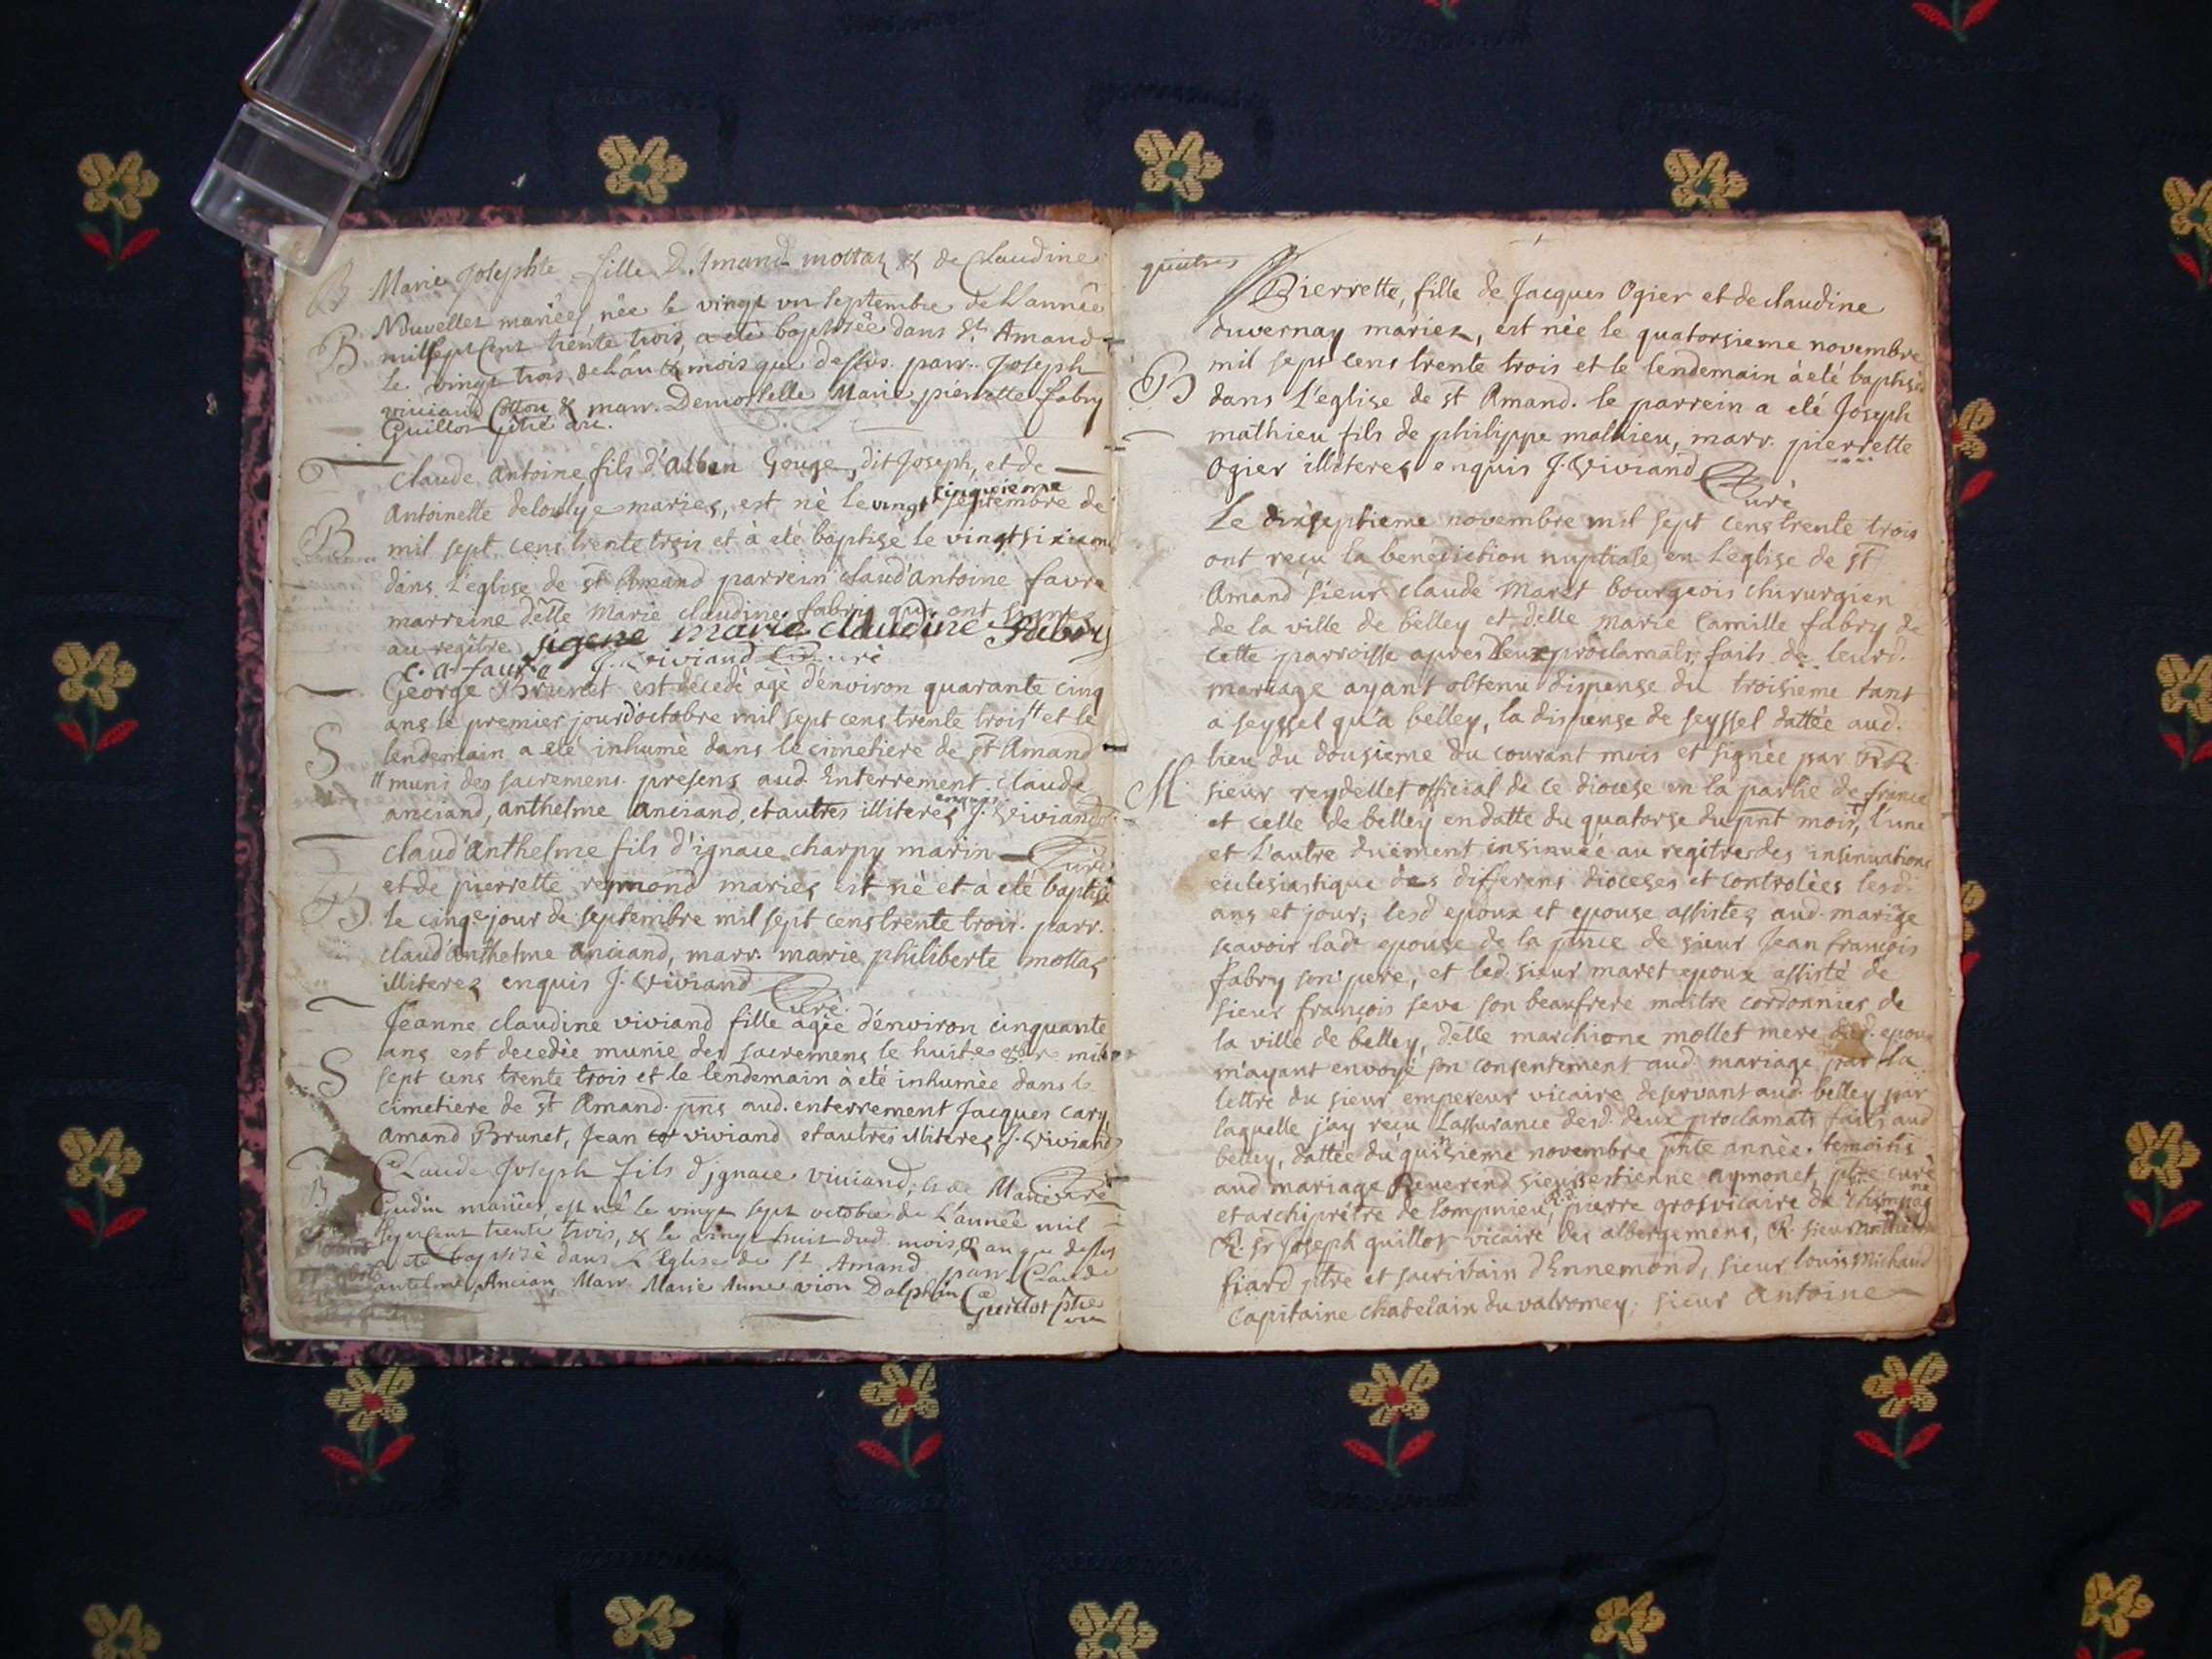 B Marie Josephte fille D'Amand mottaz & de Claudine
Nouvellez mariéez née le vingt un septembre de L'année
B mil sept Cent trente trois, a eté baptisée dans St. Amand
le vingt trois de l'an & mois que dessus. parr. Joseph
viviand Cottou & marr. Demoiselle Marie pierrette fabry
Guillot
Claude Antoine fils d'Alban Gouge, dit Joseph, et de
cinquieme
Antoinette delouye mariez, est nè le vingt septembre de
B mil sept cens trente trois et à eté baptisé le vingtsixieme
dans L'eglise de st Amand parrein claud'antoine favre
marreine delle Marie claudine fabry qui ont signez
au regitre signe marie claudine Fabry
c. a faure J. Viviand Curè
George Brunet est decedé agè d'environ quarante cinq
ans le premier jour d'octobre mil sept cens trente trois " et le
S lendemain a eté inhumè dans le cimetiere de st Amand
" muni des sacremens. presens aud. Enterrement. Claude
enquis
anciand, anthelme anciand, et autres illiterez J. Viviand
Curè
claud'anthelme fils d'ignace charpy marin
et de pierrette reymond mariez est nè et à eté baptisé
B le cinqe jour de septembre mil sept cens trente trois. parr.
claud'anthelme anciand, marr. marie philiberte mottaz
illiterez enquis J. Viviand Curè
Jeanne claudine viviand fille agèe d'environ cinquante
ans est decedèe munie des sacremens le huite 8bre mil
S sept cens trente trois et le lendemain à eté inhumèe dans le
cimetiere de st Amand. pns aud. enterrement Jacques cary
Amand Brunet, Jean viviand et autres illiterez J. Viviand
Curè
B Claude Joseph fils d'ignace viviand, & de Marie
Gudin mariées, est né le vingt sept octobre de L'année mil
sept Cent trente trois, & le vingt huit dud. mois & an que dessus
eté baptisé dans L'Eglise de St Amand parr. Claude
antelme Ancian, Marr. Marie Anne vion Dalphin
Guillot ptre
quatres
Pierrette, fille de Jacques Ogier et de claudine
duvernay mariez, est nèe le quatorsieme novembre
mil sept cens trente trois et le lendemain à eté baptisèe
B dans L'eglise de st Amand. le parrein a eté Joseph
mathieu fils de philippe mathieu, marr. pierrette
Ogier illiterez enquis J. Viviand
Curè
Le dixseptieme novembre mil sept cens trente trois
ont reçu la benediction nuptiale en L'eglise de st
Amand sieur claude Maret bourgeois chirurgien
de la ville de belley et delle Marie Camille fabry de
cette parroisse apres deux proclamats, faits de leurd.
mariage ayant obtenu dispense du troisieme tant
a seyssel qu'a belley, la dispense de seyssel dattée aud.
lieu du dousieme du courant mois et signèe par RR.
M sieur reydellet official de ce diocese en la partie de france
et celle de belley en datte du quatorse du pnt mois, l'une
et L'autre duëment insinuèe au regitre des insinuations
eclesiastique des differens dioceses et controlèes lesd.
ans et jour; lesd epoux et epouse assistez aud. mariage
scavoir lade epouse de la pnce de sieur Jean françois
fabry son pere, et led. sieur maret epoux assisté de
sieur françois seve son beaufrere maitre cordonnier de
la ville de belley, delle marchione mollet mere dud. epoux
m'ayant envoyé son consentement aud. mariage par la
lettre du sieur empereur vicaire deservant aud. belley par
laquelle j'ay reçu L'assurance desd. deux proclamats faits aud
belley, dattée du quinsieme novembre pnte annèe. temoins
aud mariage Reverend sieur estienne aymonet, ptre curè
et archiprètre de lompnieu, pierre gros vicaire de
R. sr Joseph guillot vicaire des albergemens, R. sieur anthelme
fiard ptre et sacristain d'Ennemond, sieur louis Michaud
Capitaine chatelain du valromey; sieur antoine